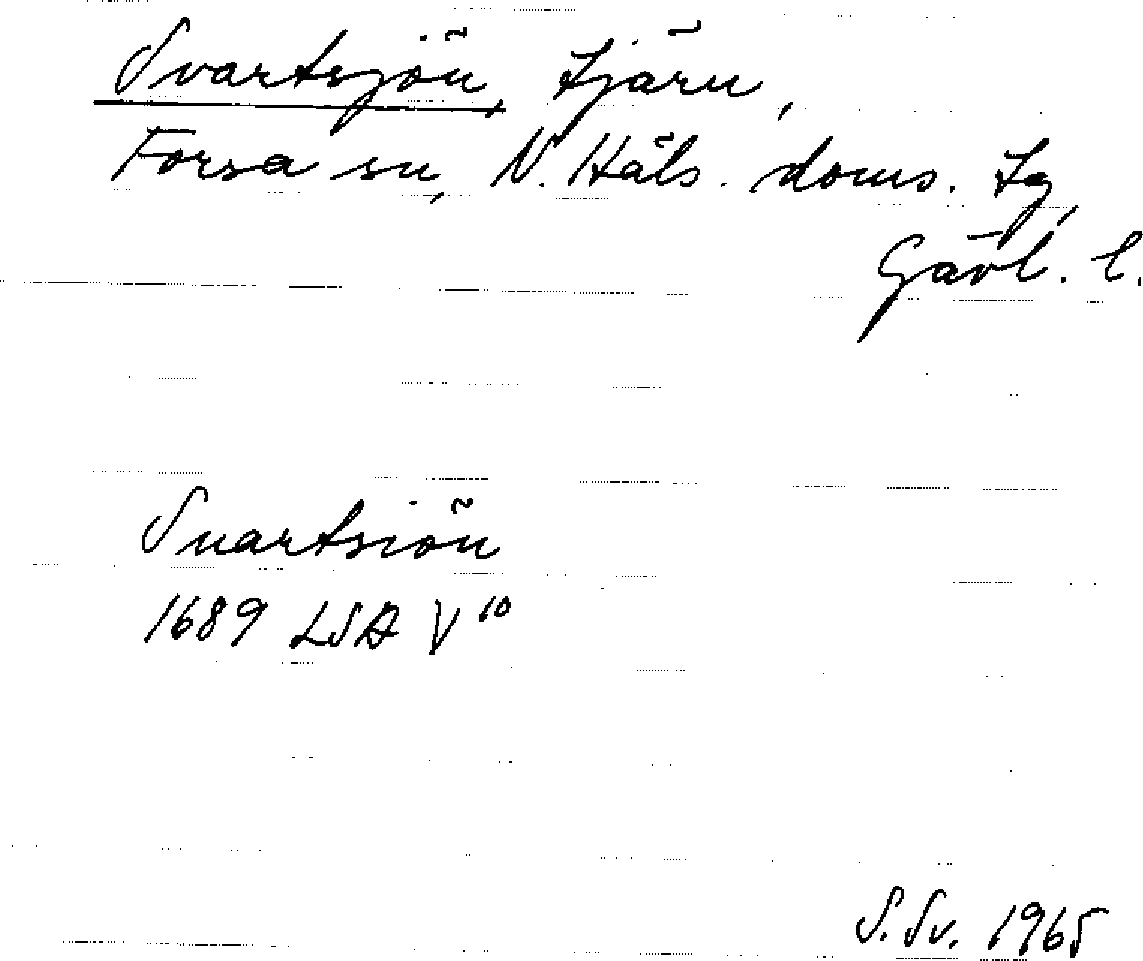 Svartsjön, tjärn,
Forsa sn, N. Häls. doms. tg,
Gävl. l.
Suartsiön
1689 LSA V10
S. Sv. 1965